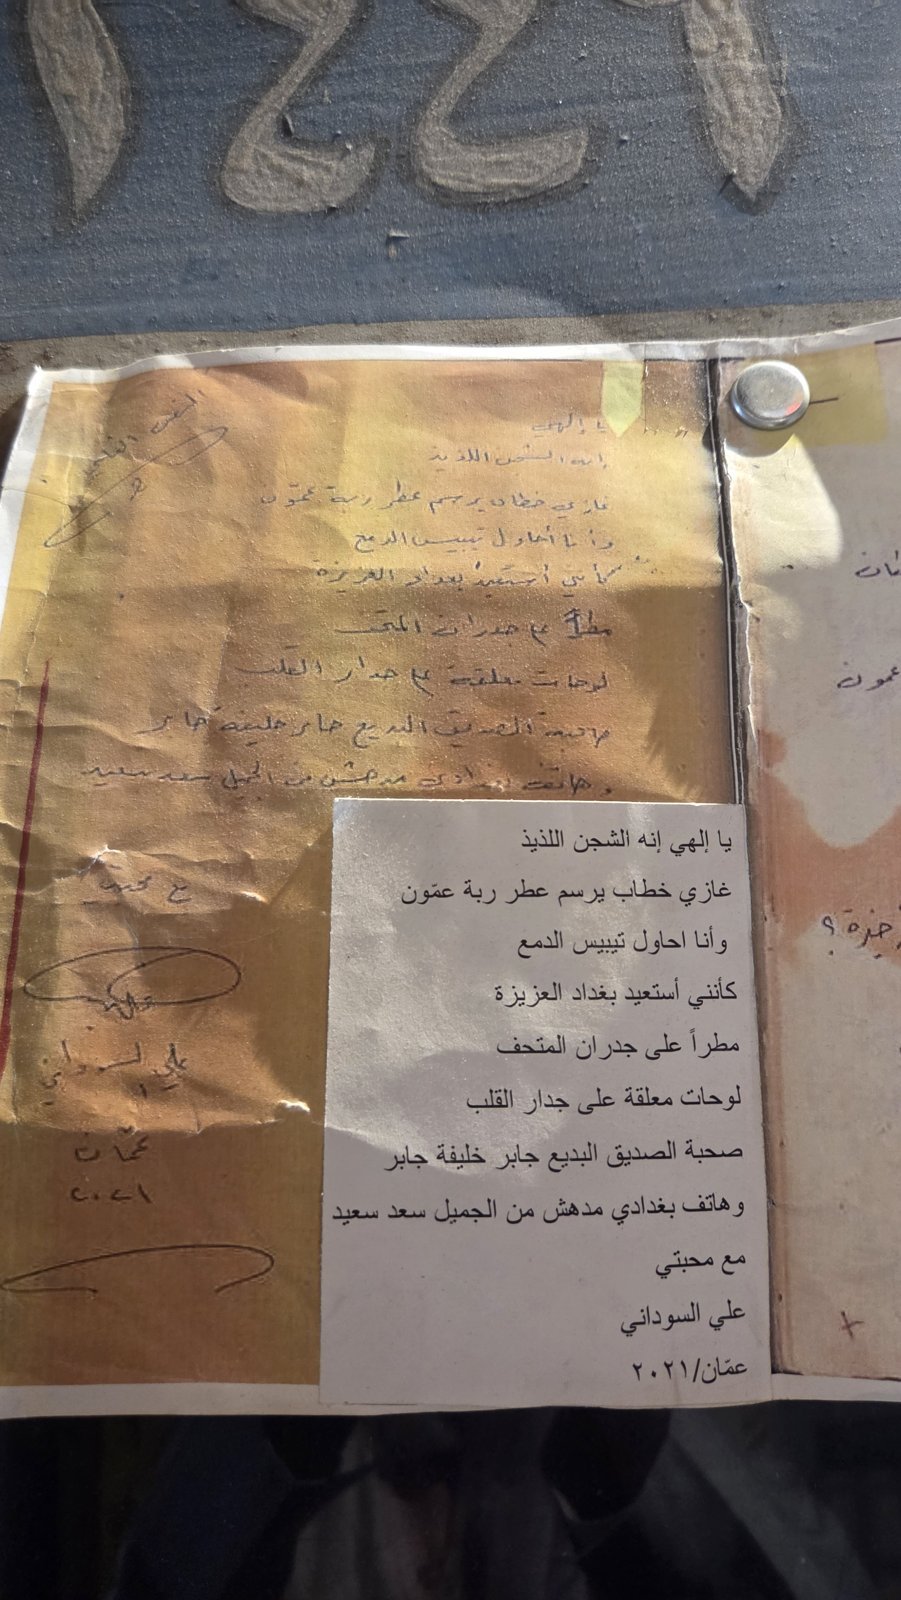 ١٤٤٩
النص الفا
يا إلهي
إنه الشجن اللذيذ
غازي خطاب يرسم عطر ربة عمّون
وأنا أحاول تيبيس الدمع
كأنني أستعيد بغداد العزيزة
مطراً على جدران المتحف
لوحات معلقة على جدار القلب
صحبة الصديق البديع جابر خليفة جابر
وهاتف بغدادي مدهش من الجميل سعد سعيد
مع محبتي
علي السوداني
عمّان
٢٠٢١
يا إلهي إنه الشجن اللذيذ
غازي خطاب يرسم عطر ربة عمّون
وأنا احاول تيبيس الدمع
كأنني أستعيد بغداد العزيزة
مطراً على جدران المتحف
لوحات معلقة على جدار القلب
صحبة الصديق البديع جابر خليفة جابر
وهاتف بغدادي مدهش من الجميل سعد سعيد
مع محبتي
علي السوداني
عمّان/٢٠٢١
عمون